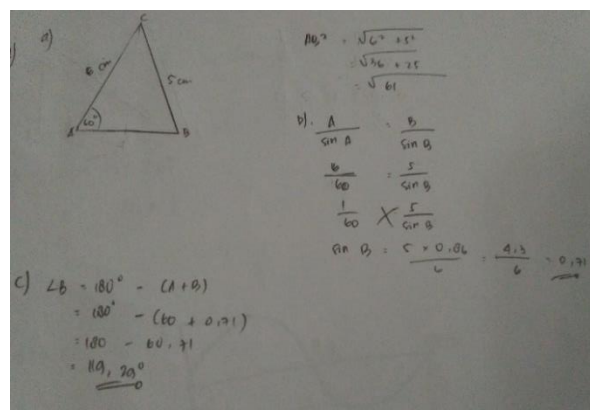 a)
C
6 cm
5 cm
60°
A
B
AB² = √6² + 5²
= √36 + 25
= √61
b). A / sin A = B / sin B
6 / 60 = 5 / sin B
1 / 60 × 5 / sin B
sin B = 5 × 0,86 / 6 = 4,3 / 6 = 0,71
c) ∠B = 180° - (A + B)
= 180° - (60 + 0,71)
= 180 - 60,71
= 119,29°